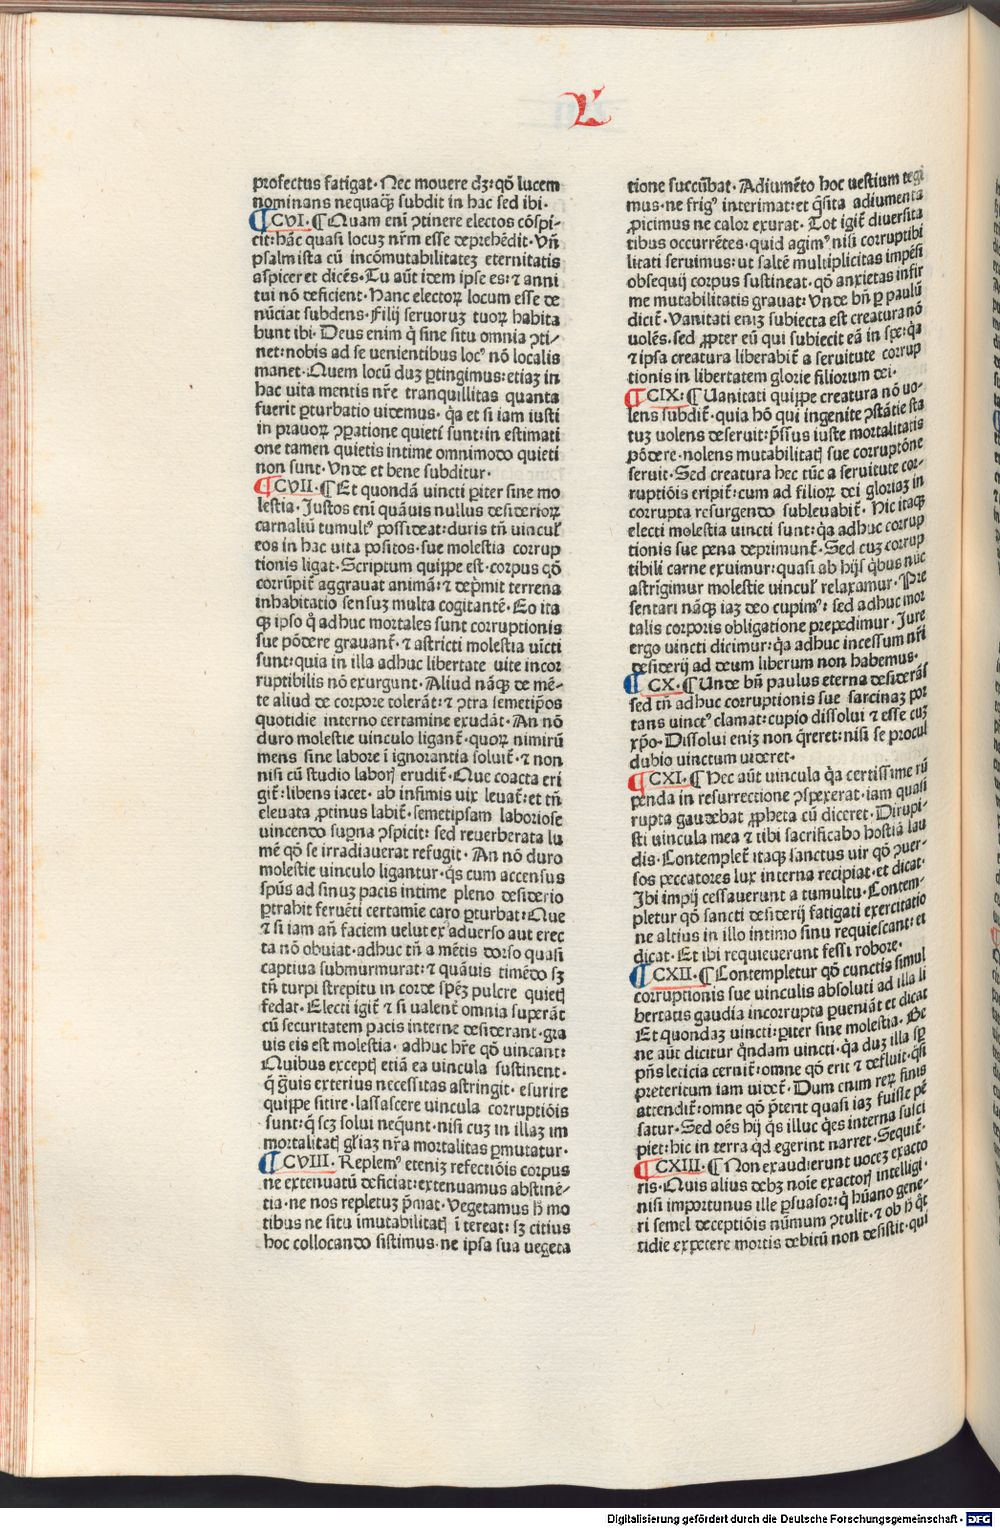 L
profectus fatigat· Nec mouere dꝫ: qð lucem
nominans nequaqꝫ subdit in hac sed ibi·
¶CVI· ¶Quam eni ꝯtinere electos cōspi-
cit: hāc quasi locuꝫ nr̄m esse deprehēdit· Vn̄
psalmista cū incōmutabilitateꝫ eternitatis
aspiceret dicēs· Tu aūt idem ipse es: ⁊ anni
tui nō deficient· Hanc electoꝝ locum esse de
nūciat subdens· Filij seruoruꝫ tuoꝝ habita
bunt ibi· Deus enim q̄ sine situ omnia ꝯti-
net: nobis ad se uenientibus locꝰ nō localis
manet· Quem locū duꝫ ꝑtingimus: etiaꝫ in
hac uita mentis nr̄e tranquillitas quanta
fuerit ꝑturbatio uidemus· q̇a et si iam iusti
in prauoꝝ ꝯꝑatione quieti sunt: in estimati
one tamen quietis intime omnimodo quieti
non sunt· Vnde et bene subditur·
¶CVII· ¶Et quondā uincti ꝑiter sine mo
lestia· Justos eni quāuis nullus desiderioꝝ
carnaliū tumultꝰ possideat: duris tn̄ uincuł
eos in hac uita positos· sue molestia corrup
tionis ligat· Scriptum quippe est· corpus qð
corrūpit̄ aggrauat animā: ⁊ dep̄mit terrena
inhabitatio sensuꝫ multa cogitantē· Eo ita
qꝫ ipso q̊ adhuc mortales sunt corruptionis
sue pōdere grauant̄· ⁊ astricti molestia uīcti
sunt: quia in illa adhuc libertate uite incor
ruptibilis nō exurgunt· Aliud nāqꝫ de mē-
te aliud de corpore tolerāt: ⁊ ꝯtra semetip̄os
quotidie interno certamine exudāt· An nō
duro molestie uinculo ligant̄· quoꝝ nimirū
mens sine labore i ignorantia soluit̄· ⁊ non
nisi cū studio laborꝭ erudit̄· Que coacta eri
git̄: libens iacet· ab infimis uix leuat̄: et tn̄
eleuata ꝓtinus labit̄· semetipsam laboriose
uincendo supna ꝯspicit: sed reuerberata lu
mē qð se irradiauerat refugit· An nō duro
molestie uinculo ligantur· q̇s cum accensus
sp̄us ad sinuꝫ pacis intime pleno desiderio
ꝑtrahit feruēti certamīe caro ꝑturbat: Que
⁊ si iam an̄ faciem uelut ex aduerso aut erec
ta nō obuiat· adhuc tn̄ a mētis dorso quasi
captiua submurmurat: ⁊ quāuis timēdo sꝫ
tn̄ turpi strepitu in corde spēꝫ pulcre quietꝭ
fedat· Electi igit̄ ⁊ si ualent̄ omnia superāt
cū securitatem pacis interne desiderant· gra
uis eis est molestia· adhuc hr̄e qð uincant:
Quibus exceptꝭ etiā ea uincula sustinent·
q̄ ḡuis exterius necessitas astringit· esurire
quippe sitire· lassascere uincula corruptiōis
sunt: q̄ scꝫ solui neq̄unt· nisi cuꝫ in illaꝫ im
mortalitatꝭ gl̄iaꝫ nr̄a mortalitas ꝑmutatur·
¶CVIII· Replemꝰ eteniꝫ refectiōis corpus
ne extenuatū deficiat: extenuamus abstinē-
tia· ne nos repletuꝫ p̄mat· Vegetamus h̄ mo
tibus ne situ imutabilitatꝭ ī tereat: sꝫ citius
hoc collocando sistimus· ne ipsa sua uegeta
tione succūbat· Adiumēto hoc uestium tegi
mus· ne frigꝰ interimat: et q̄sita adiumenta
ꝓicimus ne calor exurat· Tot igit̄ diuersita
tibus occurrētes· quid agimꝰ nisi corruptibi
litati seruimus: ut saltē multiplicitas impēsi
obsequij corpus sustineat· qð anxietas infir
me mutabilitatis grauat: Vnde bn̄ ꝑ paulū
dicit̄· Vanitati eniꝫ subiecta est creatura nō
uolēs· sed ꝓpter eū qui subiecit eā in spe: q̇a
⁊ ipsa creatura liberabit̄ a seruitute corrup
tionis in libertatem glorie filiorum dei·
¶CIX: ¶Vanitati quippe creatura nō uo-
lens subdit̄· quia hō qui ingenite ꝯstātie sta
tuꝫ uolens deseruit: p̄ssus iuste mortalitatis
pōdere· nolens mutabilitatꝭ sue corruptōne
seruit· Sed creatura hec tūc a seruitute cor-
ruptiōis eripit̄: cum ad filioꝝ dei gloriaꝫ in
corrupta resurgendo subleuabit̄· Hic itaqꝫ
electi molestia uincti sunt: q̇a adhuc corrup
tionis sue pena deprimunt̄· Sed cuꝫ corrup
tibili carne exuimur: quasi ab hijs q̇bus nūc
astrīgimur molestie uincuł relaxamur· Pre
sentari nāqꝫ iaꝫ deo cupimꝰ: sed adhuc mor
talis corporis obligatione prepedimur· Jure
ergo uincti dicimur: q̇a adhuc incessum nr̄i
desiderij ad deum liberum non habemus·
¶CX· ¶Unde bn̄ paulus eterna desiderās
sed tn̄ adhuc corruptionis sue sarcinaꝫ por
tans uinctꝰ clamat: cupio dissolui ⁊ esse cuꝫ
xp̄o· Dissolui eniꝫ non q̄reret: nisi se procul
dubio uinctum uideret·
¶CXI· ¶Hec aūt uincula q̇a certissime rū
penda in resurrectione ꝯspexerat· iam quasi
rupta gaudebat ꝓpheta cū diceret· Dirupi-
sti uincula mea ⁊ tibi sacrificabo hostiā lau
dis· Contemplet̄ itaqꝫ sanctus uir qð ꝯuer-
sos peccatores lux interna recipiat· et dicat·
Ibi impij cessauerunt a tumultu· Contem-
pletur qð sancti desiderij fatigati exercitatio
ne altius in illo intimo sinu requiescant: et
dicat· Et ibi requieuerunt fessi robore·
¶CXII· ¶Contempletur qð cunctis simul
corruptionis sue uinculis absoluti ad illa li
bertatis gaudia incorrupta ꝑueniāt et dicat
Et quondaꝫ uincti: ꝑiter sine molestia· Be
ne aūt dicitur q̊ndam uincti· q̇a duꝫ illa sꝑ
pn̄s leticia cernit̄: omne qð erit ⁊ defluit· q̄si
pretericum iam uidet̄· Dum enim reꝝ finis
attendit̄: omne qð p̄terit quasi iaꝫ fuisse pē
satur· Sed oēs hij q̇s illuc q̇es interna susci
piet: hic in terra q̇d egerint narret· Sequit̄·
¶CXIII· ¶Non exaudierunt uoceꝫ exacto
ris· Quis alius debꝫ noīe exactorꝭ intelligi·
nisi importunus ille ꝑsuasor: q̇ hūano gene-
ri semel deceptiōis nūmum ꝯtulit· ⁊ ob h̄ q̊t
tidie expetere mortis debitū non desistit· qui
Digitalisierung gefördert durch die Deutsche Forschungsgemeinschaft - DFG